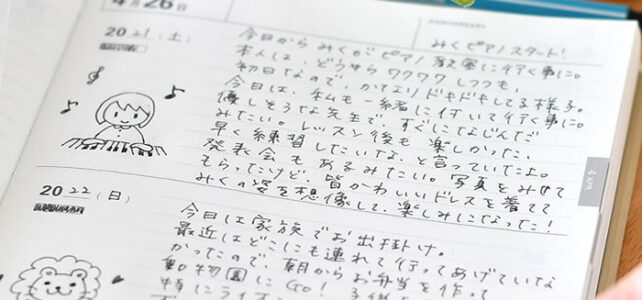 4月26日
2021(土)
みくピアノスタート!
今日から みくが ピアノ教室に行く事に。
本人は、どうやら ワクワク しつつも、
初日なので、かなり ドキドキもしてる様子。
今日は、私も一緒に付いて行く事に。
優しそうな先生で、すぐになじんだ
みたい。レッスン後も楽しかった、
早く練習したいな、と言っていたよ。
発表会もあるみたい。写真をみせて
もらったけど、皆かわいいドレスを着てて
みくの姿を想像して、楽しみになった!
4 APR
2022(日)
今日は家族でお出掛け。
最近はどこにも連れて行ってあげていな
かったので、朝からお弁当を作って
動物園にGO!
特にライオ